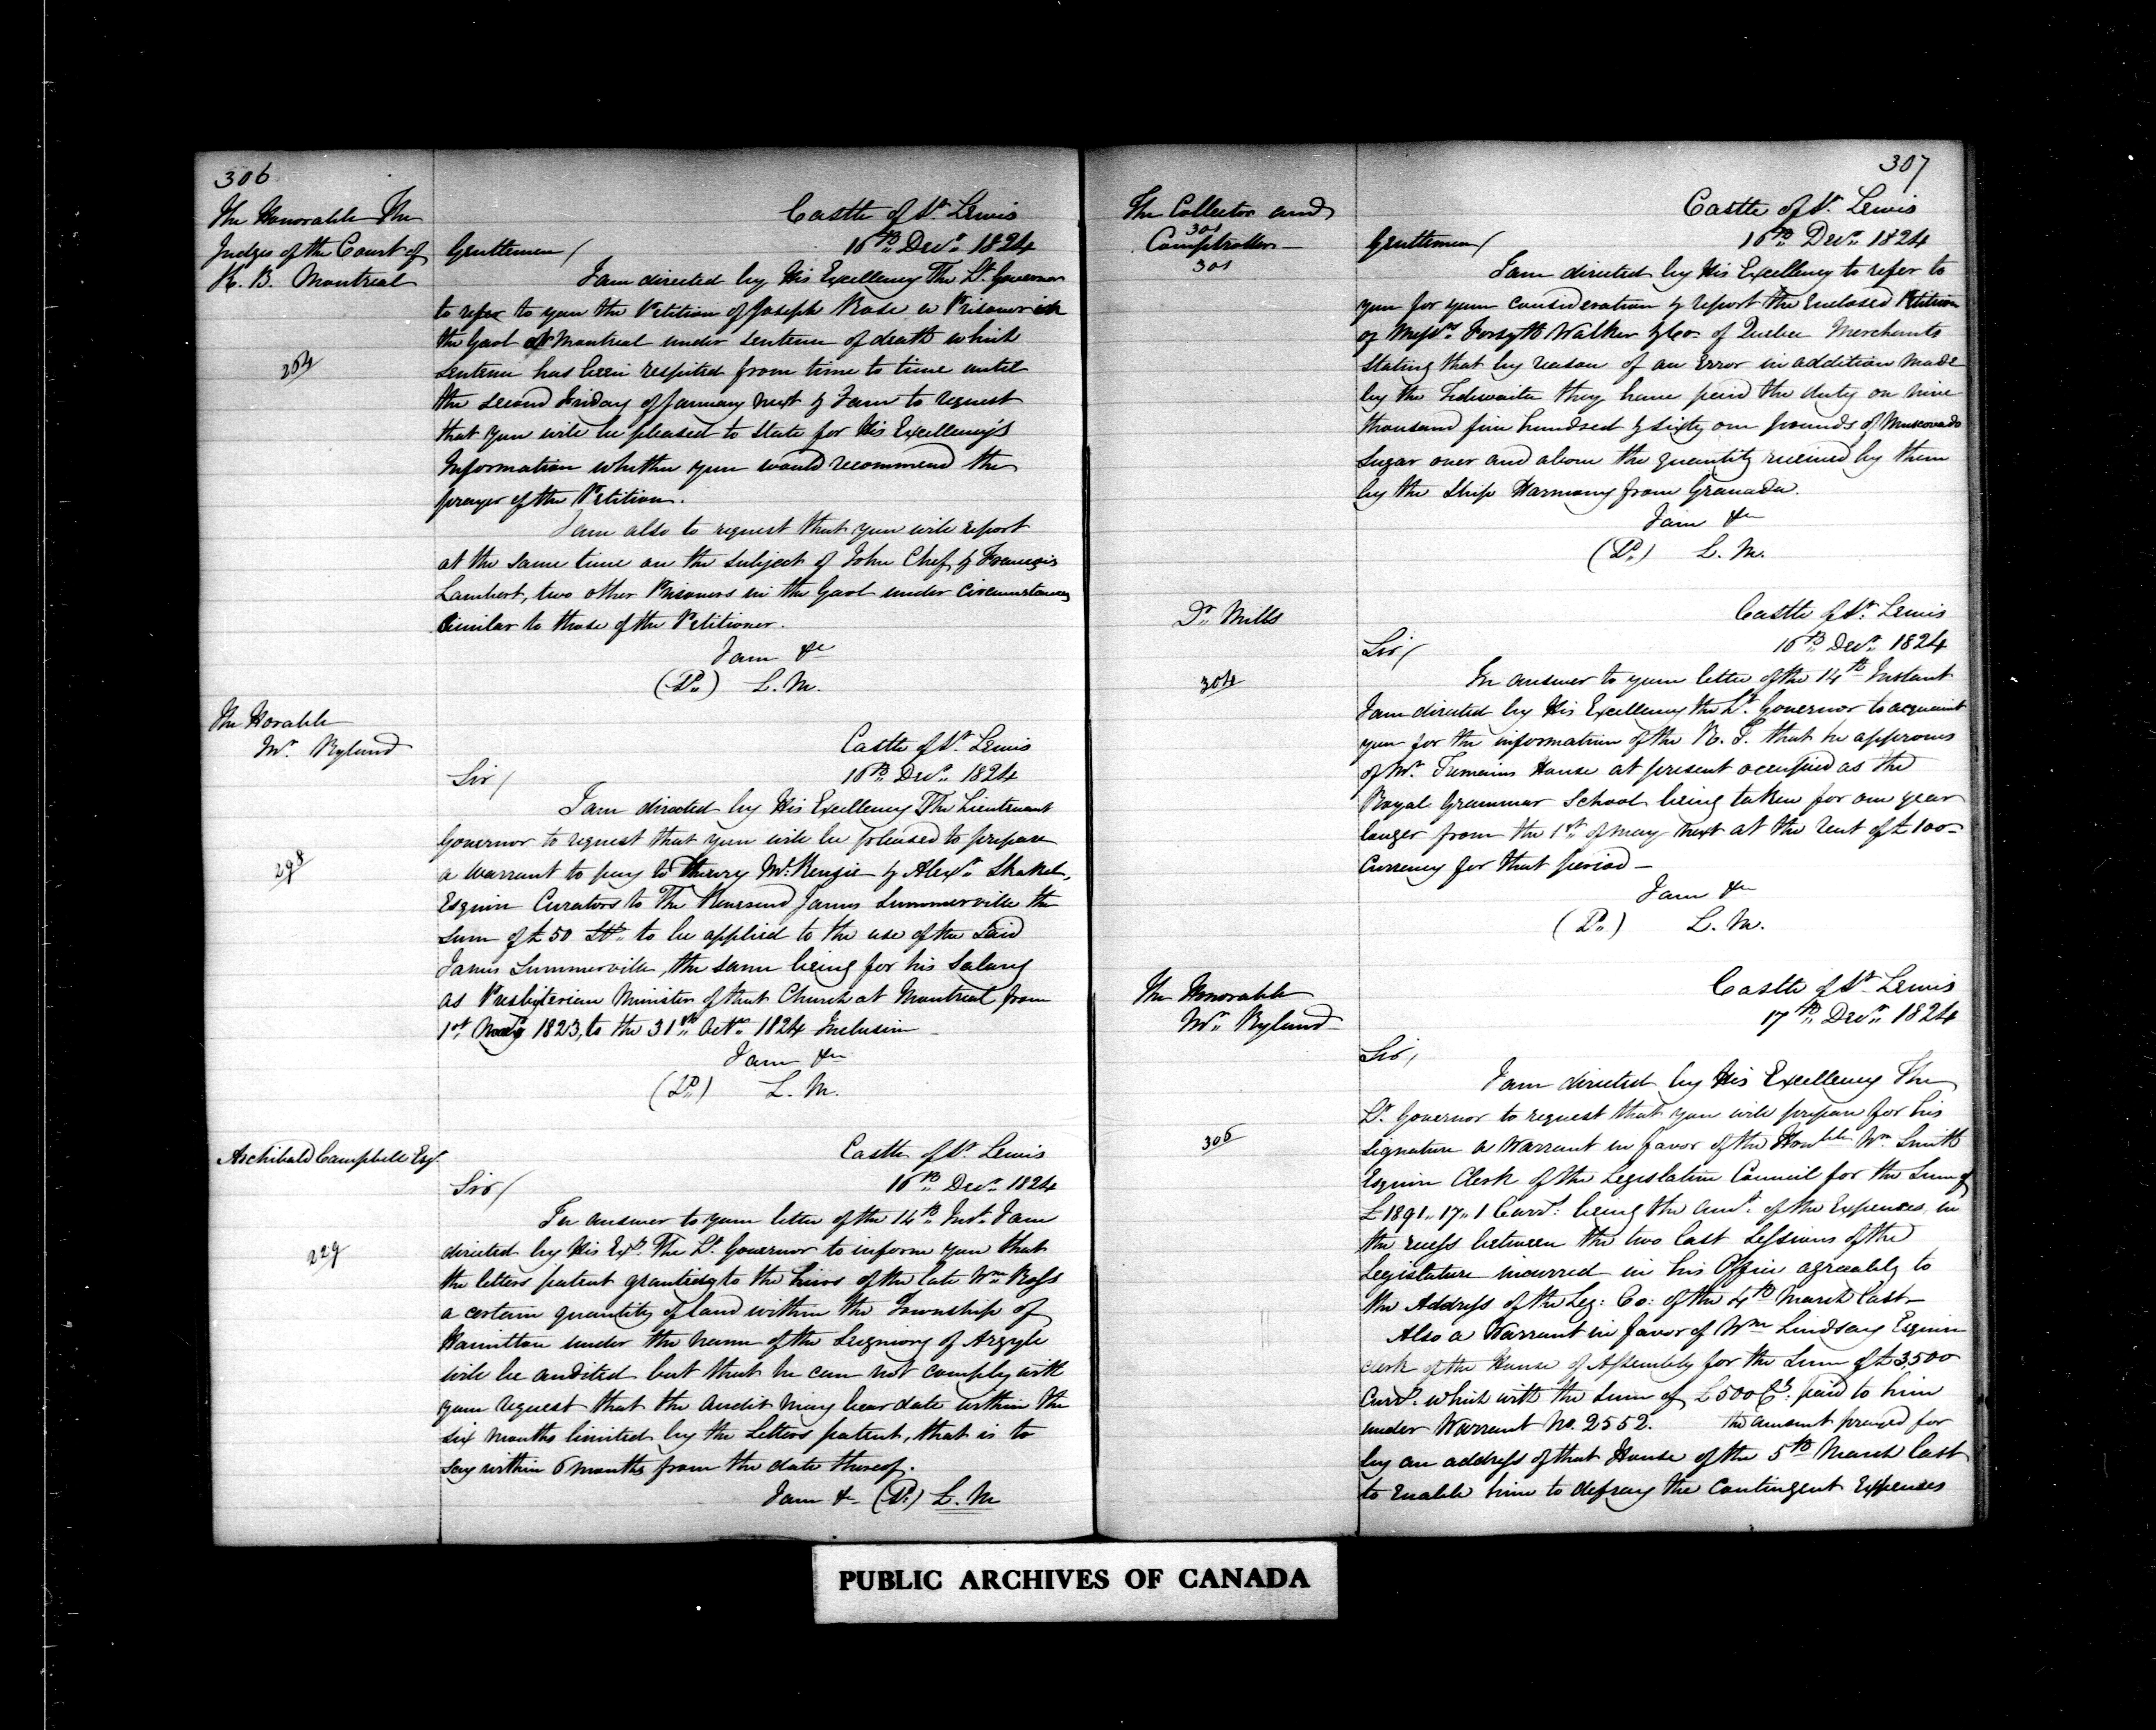 306
The Honorable The
Judges of the Court of
K. B. Montreal
Castle of St. Lewis
16th Decr. 1824
Gentlemen/
I am directed by His Excellency The Lt. Governor
to refer to you the Petition of Joseph Rose a Prisoner in
the Gaol of Montreal under Sentence of death which
264
Sentence has been respited from time to time until
the second Friday of January next & I am to request
that you will be pleased to state for His Excellency's
Information whether you would recommend the
prayer of the Petition.
I am also to request that you will report
at the same time on the subject of John Chef & François
Lambert, two other Prisoners in the Gaol under circumstances
Similar to those of the Petitioner.
I am &c
(Sd.) L. M.
The Horable
Mr. Ryland
Castle of St. Lewis
16th Decr. 1824
Sir/
I am directed by His Excellency The Lieutenant
Governor to request that you will be pleased to prepare
298
a Warrant to pay to Henry McKenzie & Alexr. Skakel,
Esquire Curators to The Reverend James Summerville the
Sum of £50 St. to be applied to the use of the said
James Summerville, the same being for his Salary
as Presbyterian Minister of that Church at Montreal from
1st May 1823, to the 31st Octr. 1824 Inclusive
I am &c
(Sd.) L. M.
Archibald Campbell Esq.
Castle of St. Lewis
16th Decr. 1824
Sir/
In answer to your letter of the 14th Inst. I am
229
directed by His Exy. The Lt. Governor to inform you that
the letters patent granting to the heirs of the late Wm. Ross
a certain quantity of land within the Township of
Hamilton under the name of the Seigniory of Argyle
will be audited but that he can not comply with
your request that the Audit may bear date within the
six months limited by the Letters patent, that is to
say within 6 months from the date thereof.
I am &c (Sd.) L. M
307
The Collector and
301
Comptroller
301
Castle of St. Lewis
16th Decr. 1824
Gentlemen/
I am directed by His Excellency to refer to
you for your consideration & report the Enclosed Petition
of Messrs. Forsyth Walker & Co. of Quebec Merchants
Stating that by reason of an Error in addition made
by the Tidewaiter they have paid the duty on nine
thousand five hundred & sixty one pounds of Muscovado
Sugar over and above the quantity received by them
by the Ship Harmony from Granada.
I am &c
(Sd.) L. M.
Dr. Mills
304
Castle of St. Lewis
16th Decr. 1824
Sir/
In answer to your letter of the 14th Instant
I am directed by His Excellency the Lt. Governor to acquaint
you for the information of the R. I. that he approves
of Mr. Tremains House at present occupied as the
Royal Grammar School being taken for one year
longer from the 1st of May next at the rent of £100
Currency for that period
I am &c
(Sd.) L. M.
The Honorable
Mr. Ryland
Castle of St. Lewis
17th Decr. 1824
Sir/
I am directed by His Excellency The
Lt. Governor to request that you will prepare for his
306
signature a Warrant in favor of the Honble. Wm. Smith
Esquire Clerk of the Legislative Council for the Sum of
£1891„17„1 Curry. being the amt. of the Expences, in
the recess between the two last Sessions of the
Legislature incurred in his Office agreeably to
the Address of the Leg: Co: of the 4th March last
Also a Warrant in favor of Wm. Lindsay Esquire
clerk of the House of Assembly for the Sum of £3,500
Curry. which with the Sum of £500 Cy: paid to him
under Warrant No. 2552. the amount prayed for
by an address of that House of the 5th March last
to enable him to defray the Contingent Expences
PUBLIC ARCHIVES OF CANADA